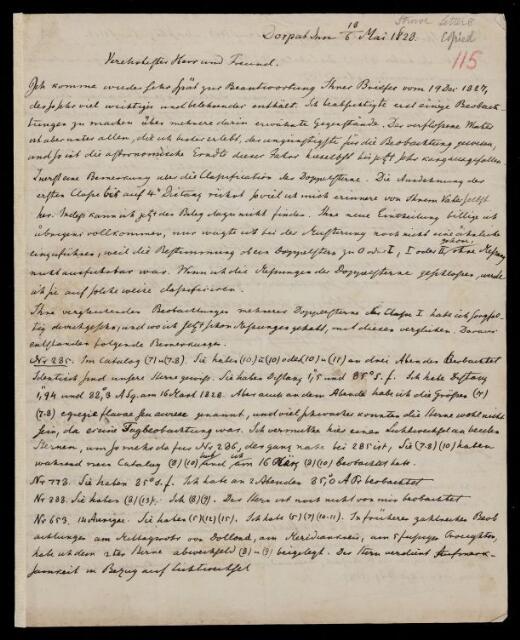 Struve Letters
Copied
115
Dorpat den 10/6 Mai 1828.
Verehrtester Herr und Freund.
Ich komme wieder sehr spät zur Beantwortung Ihres Briefes vom 19 Dec 1827,
der sehr viel wichtiges und belehrendes enthält. Ich beabsichtigte erst einige Beobach
tungen zu machen über mehrere darin erwähnte Gegenstände. Der verflossene Winter
ist aber unter allen, die ich bisher erlebt, der ungünstigste für die Beobachtung gewesen,
und so ist die astronomische Erndte dieses Jahrs hieselbst bis jetzt sehr karg ausgefallen.
Zuerst eine Bemerkung über die Classification der Doppelsterne. Die Ausdehnung der
ersten Classe bis auf 4" Distanz rührt so viel ich mich erinnere von Ihrem Vater selbst
her. Indess kann ich jetzt den Beleg dazu nicht finden. Ihre neue Eintheilung billige ich
übrigens vollkommen, nur wagte ich bei der Musterung noch nicht eine ähnliche
einzuführen, weil die Bestimmung ob ein Doppelstern zu 0 oder I, I oder II schon ohne Messung
nicht ausführbar war. Wenn ich die Messungen der Doppelsterne geschlossen, werde
ich sie auf solche weise classificiren.
Ihre vergleichenden Beobachtungen mehrerer Doppelsterne der Classe I habe ich sorgfäl
tig durchgesehn, und wo ich selbst schon Messungen gehabt, mit diesen verglichen. Daraus
entstanden folgende Bemerkungen.
Nr 285. Im Catalog (7) u (7.8). Sie haben (10) u (10) oder (10) u (11) an drei Abenden beobachtet
Identisch sind unsere Sterne gewiss. Sie haben Distanz 1",5 und 85° s.f. Ich habe Distanz
1",94 und 88°,3 s.f. am 16 März 1828. Aber auch an dem Abende habe ich die Größen (7)
(7.8) egregie flavae seu aureae genannt, und viel schwächer konnten die Sterne wohl nicht
sein, da es eine Tagbeobachtung war. Ich vermuthe hier einen Lichtwechsel an beiden
Sternen, um so mehr da für Nr 286, der ganz nahe bei 285 ist, Sie (7.8) (10) haben
während mein Catalog (8) (10) hat und ich am 16 März (8) (10) beobachtet habe.
Nr 773. Sie haben 85° s.f. Ich habe an 2 Abenden 85°,0 beobachtet
Nr 288. Sie haben (8) (13). Ich (8) (9). Der Stern ist noch nicht von mir beobachtet
Nr 653. 14 Aurigae. Sie haben (5) (12) (15). Ich habe (5) (7) (10-11). In früheren zahlreichen Beob
achtungen am Mittagsrohr von Dollond, am Meridiankreis, am 5 fussigen Troughton,
habe ich dem 2ten Sterne abwechselnd (8) u (9) beigelegt. Der Stern verdient Aufmerk-
samkeit in Bezug auf Lichtwechsel